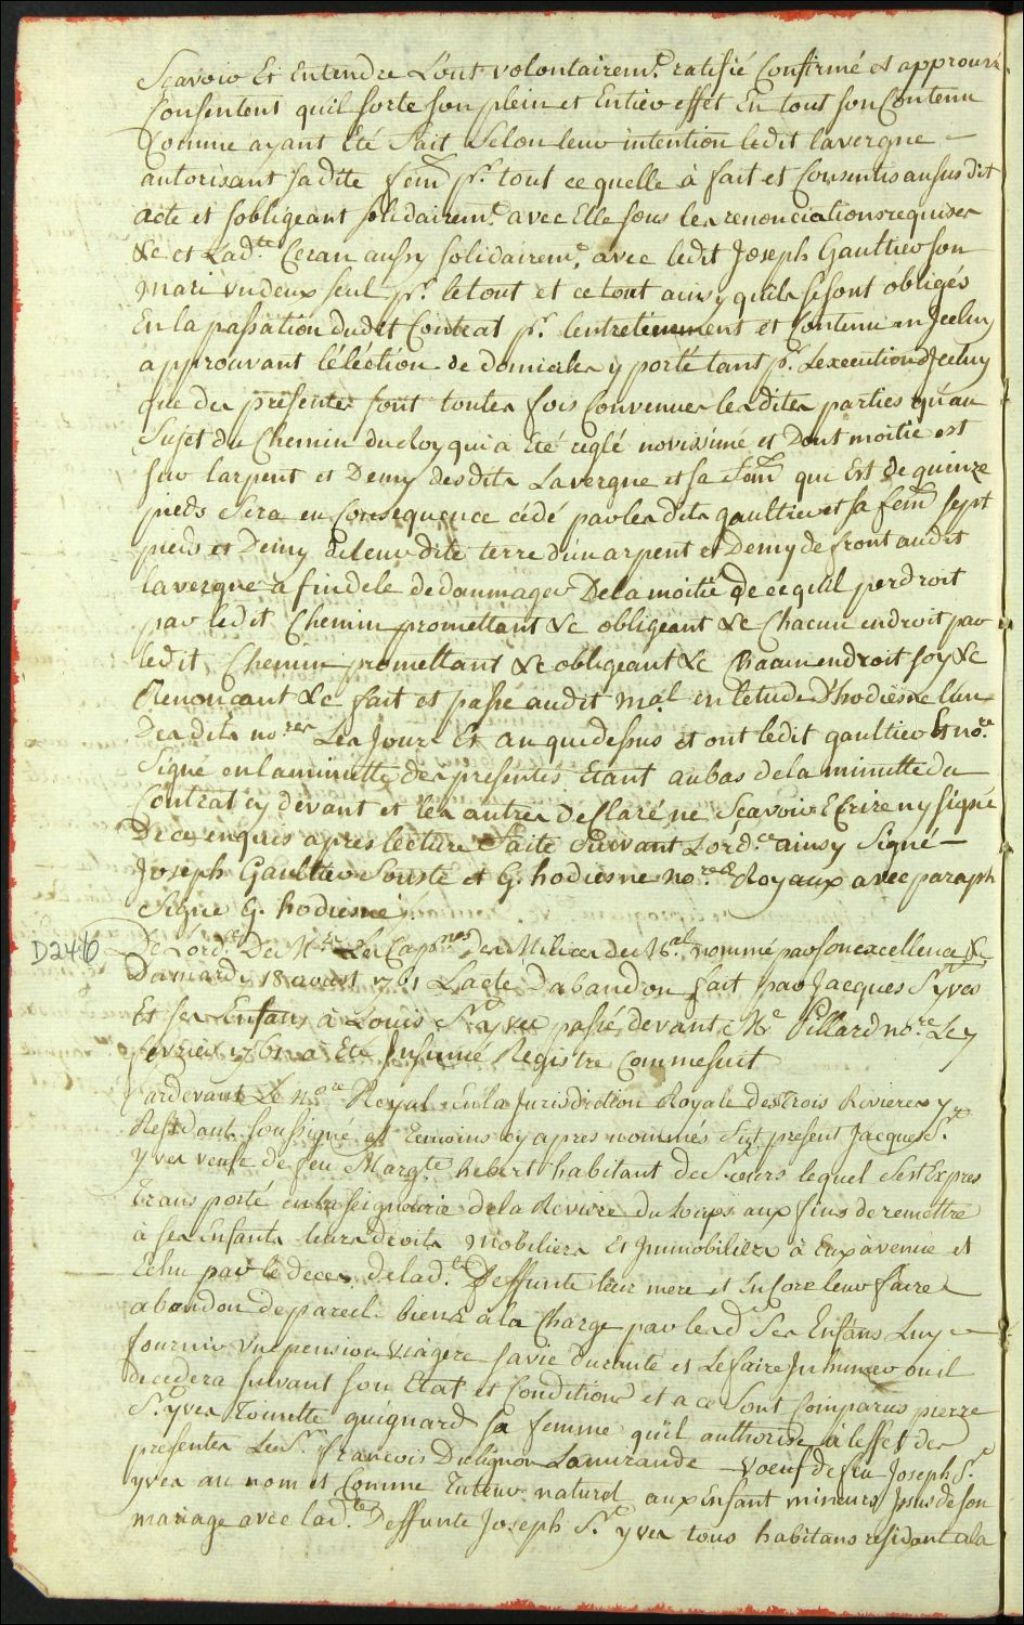 Sçavoir Et Entendre L'ont volontairemt. ratifié Confirmé et approuvé
Consentent quil sorte son plein et Entier effet En tout son Contenu
Comme ayant Eté fait Selon leur intention ledit lavergne —
autorisant sadite fem̃ pr. tout ce quelle à fait et Consentis au susdit
acte et sobligeant solidairemt. avec Elle sous les renonciations requises
&c et Ladte. Ceran aussy solidairemt. avec ledit Joseph Gaultier son
Mari un deux seul pr. le tout et ce tout ainsy quils se sont obligés
En la passation dudit Contrat pr. lentretiennement et Contenu en Jceluy
approuvant l'éléction de domiciles y porté tant pr. Lexecution dJceluy
que des presentes sont toutes fois Convenues lesdites parties qu'au
Sujet du Chemin du Roy qui à Eté reglé novissimé et Dont moitié est
sur larpent et Demy desdits Lavergne et sa fem̃ qui Est de quinze
pieds Sera en Consequence cédé par lesdits gaultier et sa fem̃ sept
pieds et Demy de leur dite terre d'un arpent et Demy de front audit
lavergne a fin de le dedommager De la moitié de ce qu'il perdroit
par ledit Chemin promettant &c obligeant &c Chacun endroit par
ledit Chemin promettant &c obligeant &c Chacun endroit soy &c
Renonçant &c fait et passé audit Mal en l'etude D'hodiesne l'un
Desdits nores Les Jour Et an que dessus et ont ledit gaultier Et nore.
Signé en la minutte des presentes Etant au bas de la minutte du
Contrat cy devant et les autres Desclaré ne Sçavoir Ecrire ny signé
De ce enquis apres lecture Faite Suivant Lordce. ainsy Signé —
Joseph Gaultier Souste et G. hodiesne nores Royaux avec paraph
Signé G. hodiesne
D246 De Lordce Des Mrs Les Capnes des Milices de Mal. nommé par son excellence &c
Du mardy 18 aoust 1761 Lacte Dabandon fait par Jacques St yves
Et ses Enfans à Louis St yves passé devant Me Pillard nore. Le 7
fevrier 1761 a Eté Insinué Registre Comme suit
Pardevant Le nore Royal En la Jurisdiction Royale des Trois Rivieres y
Residant soussigné et Temoins cy apres nommés fut present Jacques St.
Yves veuf de feu Margte. hebert habitant de St. ours lequel s'est Expres
Transporté en la seigneurie de la Riviere du Loups aux fins de remettre
à ses Enfants leurs droits Mobiliers Et Jmmobiliers à Eux avenue et
Echu par le deces de ladte. Deffunte leur mere et Encore leur faire
abandon de pareil biens à la Charge par lesd Ses Enfans Luy —
fournir Une pension viagere sa vie Durante et Le faire Jnhumer ou il
decedera suivant son Etat et Condition et a ce sont Comparus pierre
St. yves Toinette guignard sa femme quil authorise à leffet des
presentes Le Sr. francois Dulignon Lamirande — Voeuf de feu Joseph St.
yves au nom et Comme Tuteur naturel aux Enfant mineurs Jssus de son
mariage avec ladte. Deffunte Joseph St. yves tous habitans residant a la